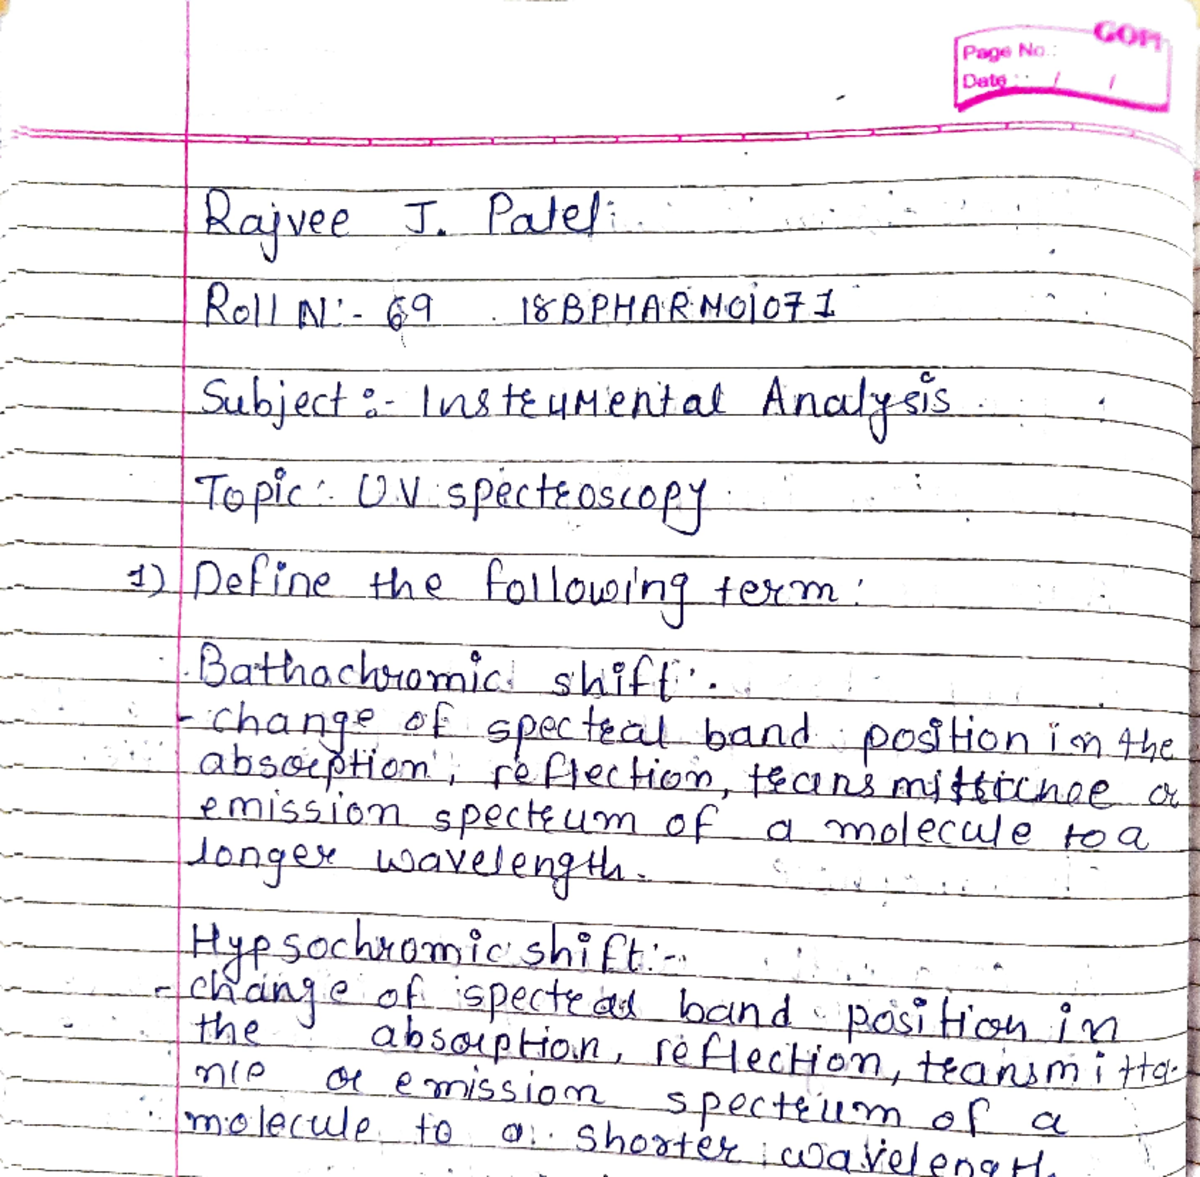 GOPI
Page No.:
Date : / /
Rajvee J. Patel
Roll N:- 69 18BPHARM01071
Subject :- Instrumental Analysis
Topic: U.V. spectroscopy
1) Define the following term:
Bathachromic shift:
- change of spectral band position in the
absorption, reflection, transmittance or
emission spectrum of a molecule to a
longer wavelength.
Hypsochromic shift:-
- change of spectral band position in
the absorption, reflection, transmitta-
nce or emission spectrum of a
molecule to a shorter wavelength.